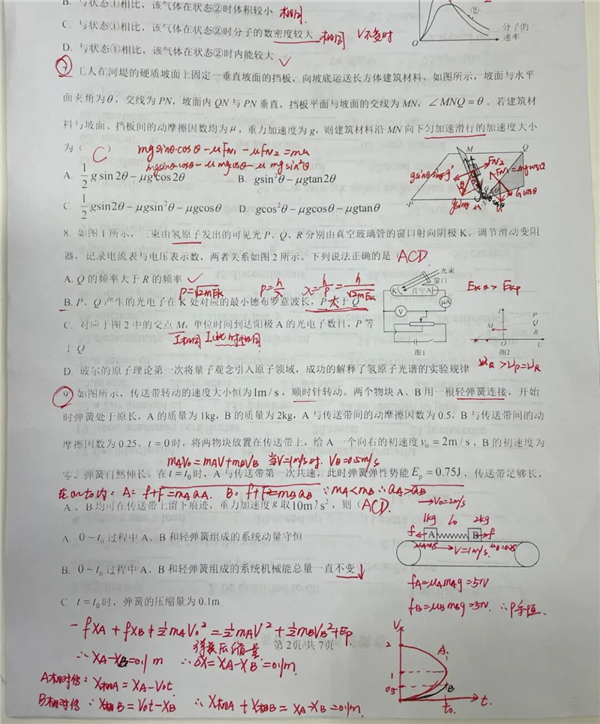 B. 与状态①相比，该气体在状态②时体积较小 相同
C. 与状态①相比，该气体在状态②时分子的数密度较大 相同 V不变时
D. 与状态①相比，该气体在状态②时内能较大 √
② 分子的速率
7 工人在河堤的硬质坡面上固定一垂直坡面的挡板，向坡底运送长方体建筑材料，如图所示，坡面与水平
面夹角为θ，交线为PN，坡面内QN与PN垂直，挡板平面与坡面的交线为MN，∠MNQ=θ。若建筑材
料与坡面、挡板间的动摩擦因数均为μ，重力加速度为g，则建筑材料沿MN向下匀加速滑行的加速度大小
为（ C ） mgsinθ·cosθ-μFN1-μFN2=ma
mgsinθcosθ-μmgcosθ-μmgsin²θ
A. 1/2 g sin2θ-μgcos2θ B. gsin²θ-μgtan2θ
C 1/2 gsin2θ-μgsin²θ-μgcosθ D. gcos²θ-μgcosθ-μgtanθ
8. 如图1所示，三束由氢原子发出的可见光P、Q、R分别由真空玻璃管的窗口射向阴极K。调节滑动变阻
器，记录电流表与电压表示数，两者关系如图2所示，下列说法正确的是（ ACD.
A. Q的频率大于R的频率 √
P=√2mEk P=h/λ λ=h/P=h/√2mEk
B. P、Q产生的光电子在K处对应的最小德布罗意波长，P大于Q
C. 对应于图2中的交点M，单位时间到达阳极A的光电子数目，P等
于Q I相同
D. 玻尔的原子理论第一次将量子观念引入原子领域，成功的解释了氢原子光谱的实验规律
光束 窗口 K A 真空 V μA
图1 图2
EkQ>EkP
I M P Q R
9 如图所示，传送带转动的速度大小恒为1m/s，顺时针转动。两个物块A、B用一根轻弹簧连接，开始
时弹簧处于原长，A的质量为1kg，B的质量为2kg，A与传送带间的动摩擦因数为0.5，B与传送带间的动
摩擦因数为0.25。t=0时，将两物块放置在传送带上，给A一个向右的初速度v₀=2m/s，B的初速度为
mAV₀=mAV+mBVB 当V=1m/s时，VB=0.5m/s
零，弹簧自然伸长。在t=t₀时，A与传送带第一次共速，此时弹簧弹性势能Ep=0.75J，传送带足够长，
在0~t₀内：A：f+F=mAaA. B：f+F=mBaB ∵mA<mB ∴aA>aB
A、B均可在传送带上留下痕迹，重力加速度g取10m/s²，则（ ACD.
A. 0~t₀过程中A、B和轻弹簧组成的系统动量守恒
B. 0~t₀过程中A、B和轻弹簧组成的系统机械能总量一直不变 ↓
C. t=t₀时，弹簧的压缩量为0.1m
→V₀=2m/s
1kg l₀ 2kg
f A B f
V=1m/s
fA=μAmAg=5N
fB=μBmBg=5N ∴P守恒
-fXA+fXB+½mAV₀²=½mAV²+½mBVB²+Ep
第2页/共7页
弹簧压缩量
∴XA-XB=0.1m ∴ΔX=XA-XB=0.1m
A相对传：X相A=XA-V₀t.
B相对传：X相B=V₀t-XB ∴X相A+X相B=XA-XB=0.1m
V 2 1 0.5 A B t₀ t.